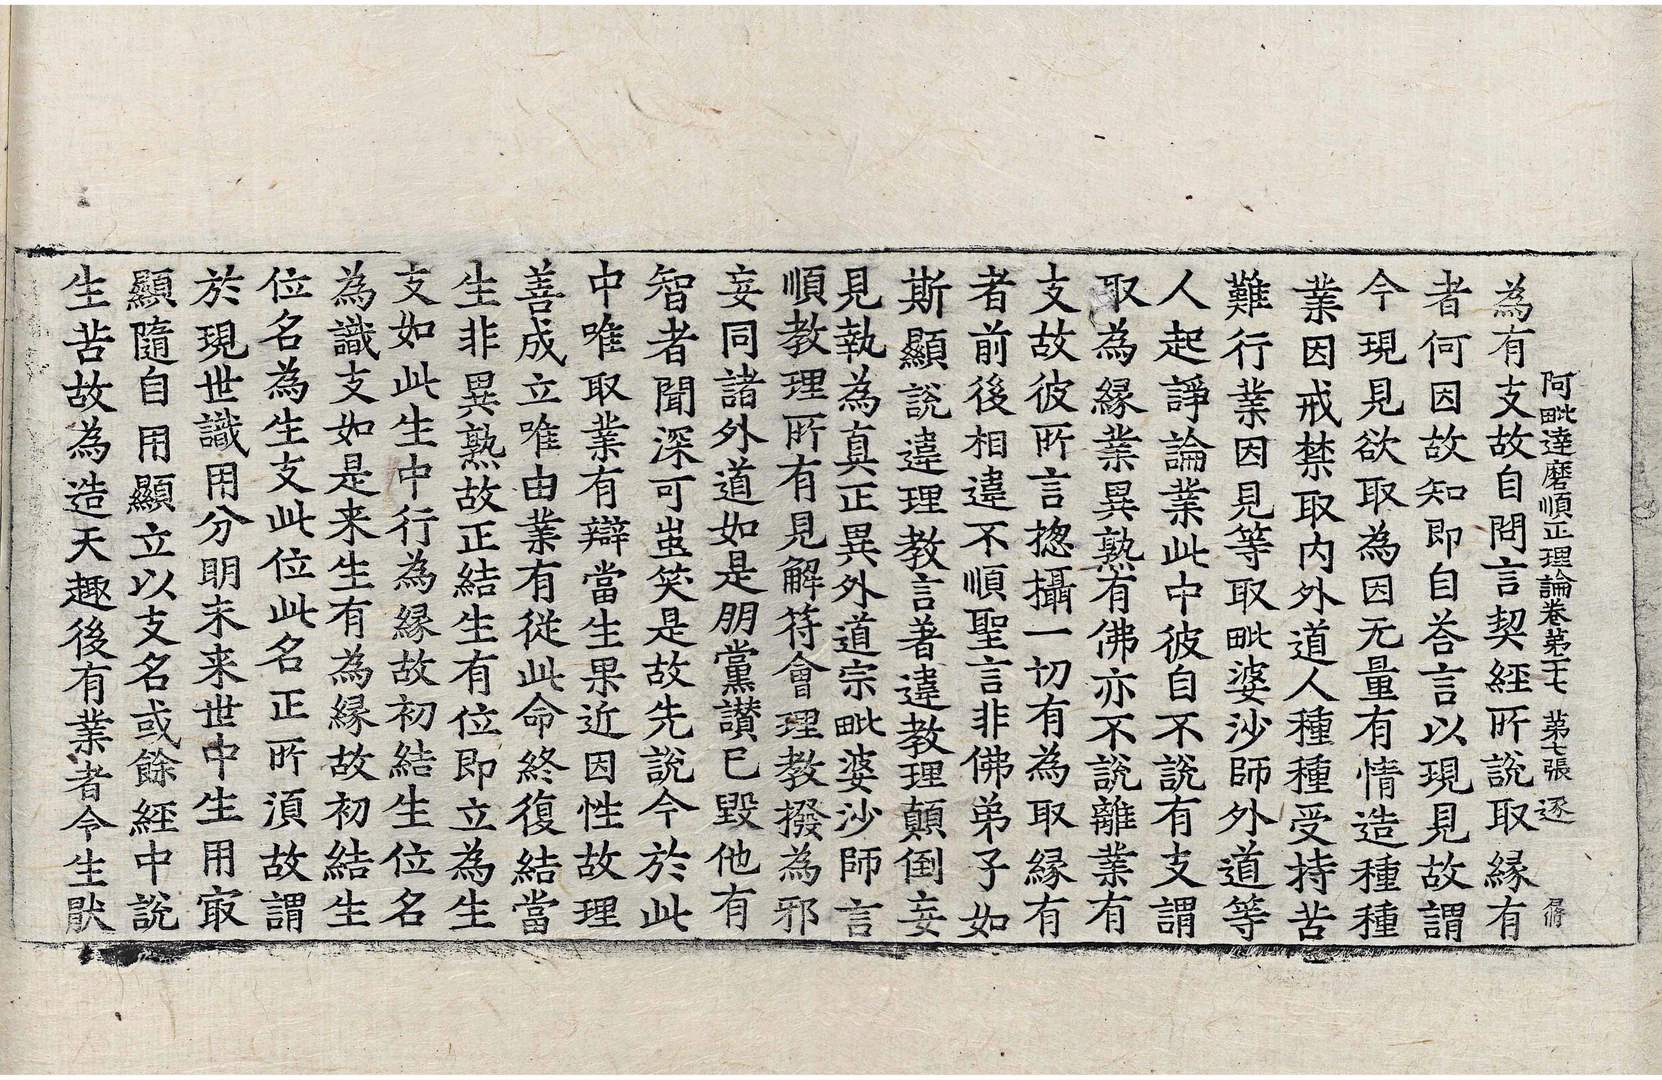 阿毗達磨順正理論卷第二十七 第七張 逐
為有支故自問言契經所說取緣有
者何因故知即自荅言以現見故謂
今現見欲取為因无量有情造種種
業因戒禁取內外道人種種受持苦
難行業因見等取毗婆沙師外道等
人起諍論業此中彼自不說有支謂
取為緣業異熟有佛亦不說離業有
支故彼所言揔攝一切有為取緣有
者前後相違不順聖言非佛弟子如
斯顯說違理教言著違教理顛倒妄
見執為真正異外道宗毗婆沙師言
順教理所有見解符會理教撥為邪
妄同諸外道如是朋黨讚已毀他有
智者聞深可蚩笑是故先說今於此
中唯取業有辯當生果近因性故理
善成立唯由業有從此命終復結當
生非異熟故正結生有位即立為生
支如此生中行為緣故初結生位名
為識支如是来生有為緣故初結生
位名為生支此位此名正所須故謂
於現世識用分明未来世中生用㝡
顯隨自用顯立以支名或餘經中說
生苦故為造天趣後有業者令生猒